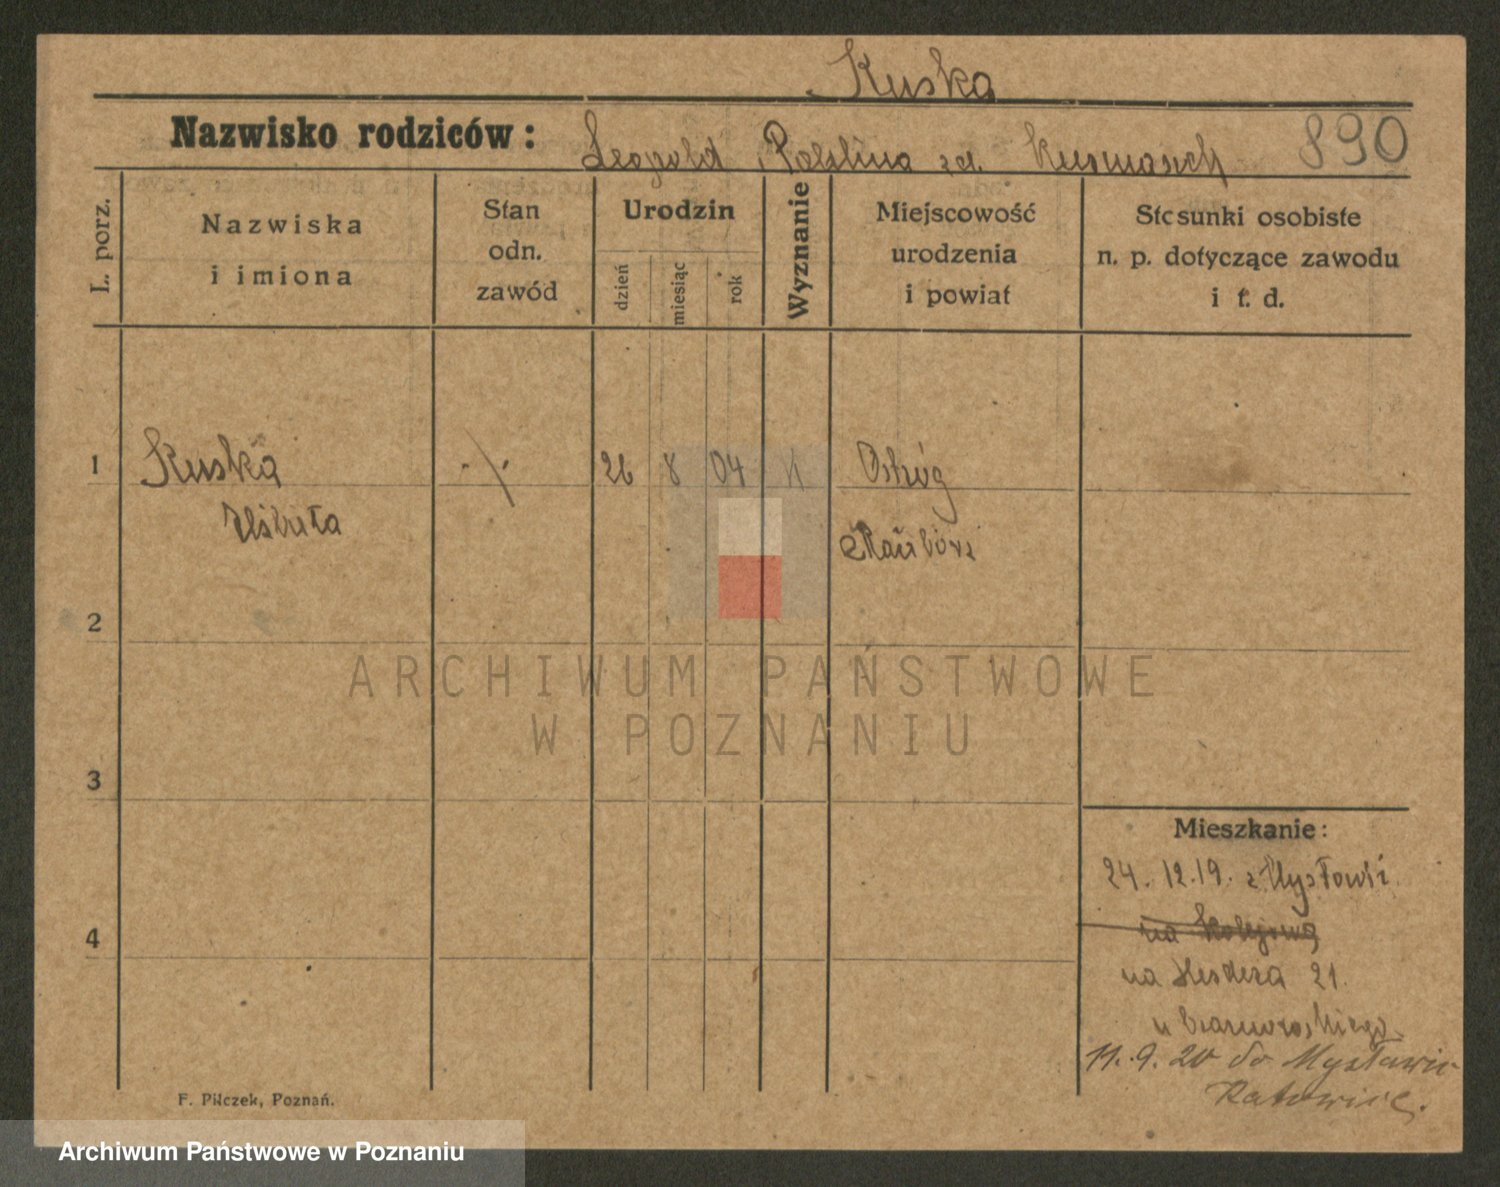 Kuska
Nazwisko rodziców: Leopold Paulina zd. 890
L. porz.
Nazwiska i imiona
Stan odn. zawód
Urodzin
dzień miesiąc rok
Wyznanie
Miejscowość urodzenia i powiat
Stosunki osobiste n. p. dotyczące zawodu i t. d.
1 Kuska -/- 26 8 04 Ostróg
Elżbieta Racibórz
2
3
4
Mieszkanie:
24. 12. 19. z Mysłowic
na Kolejową
na 21.
u
11. 9. 20 do Mysłowic
Katowice.
F. Pilczek, Poznań.
ARCHIWUM PAŃSTWOWE
W POZNANIU
Archiwum Państwowe w Poznaniu